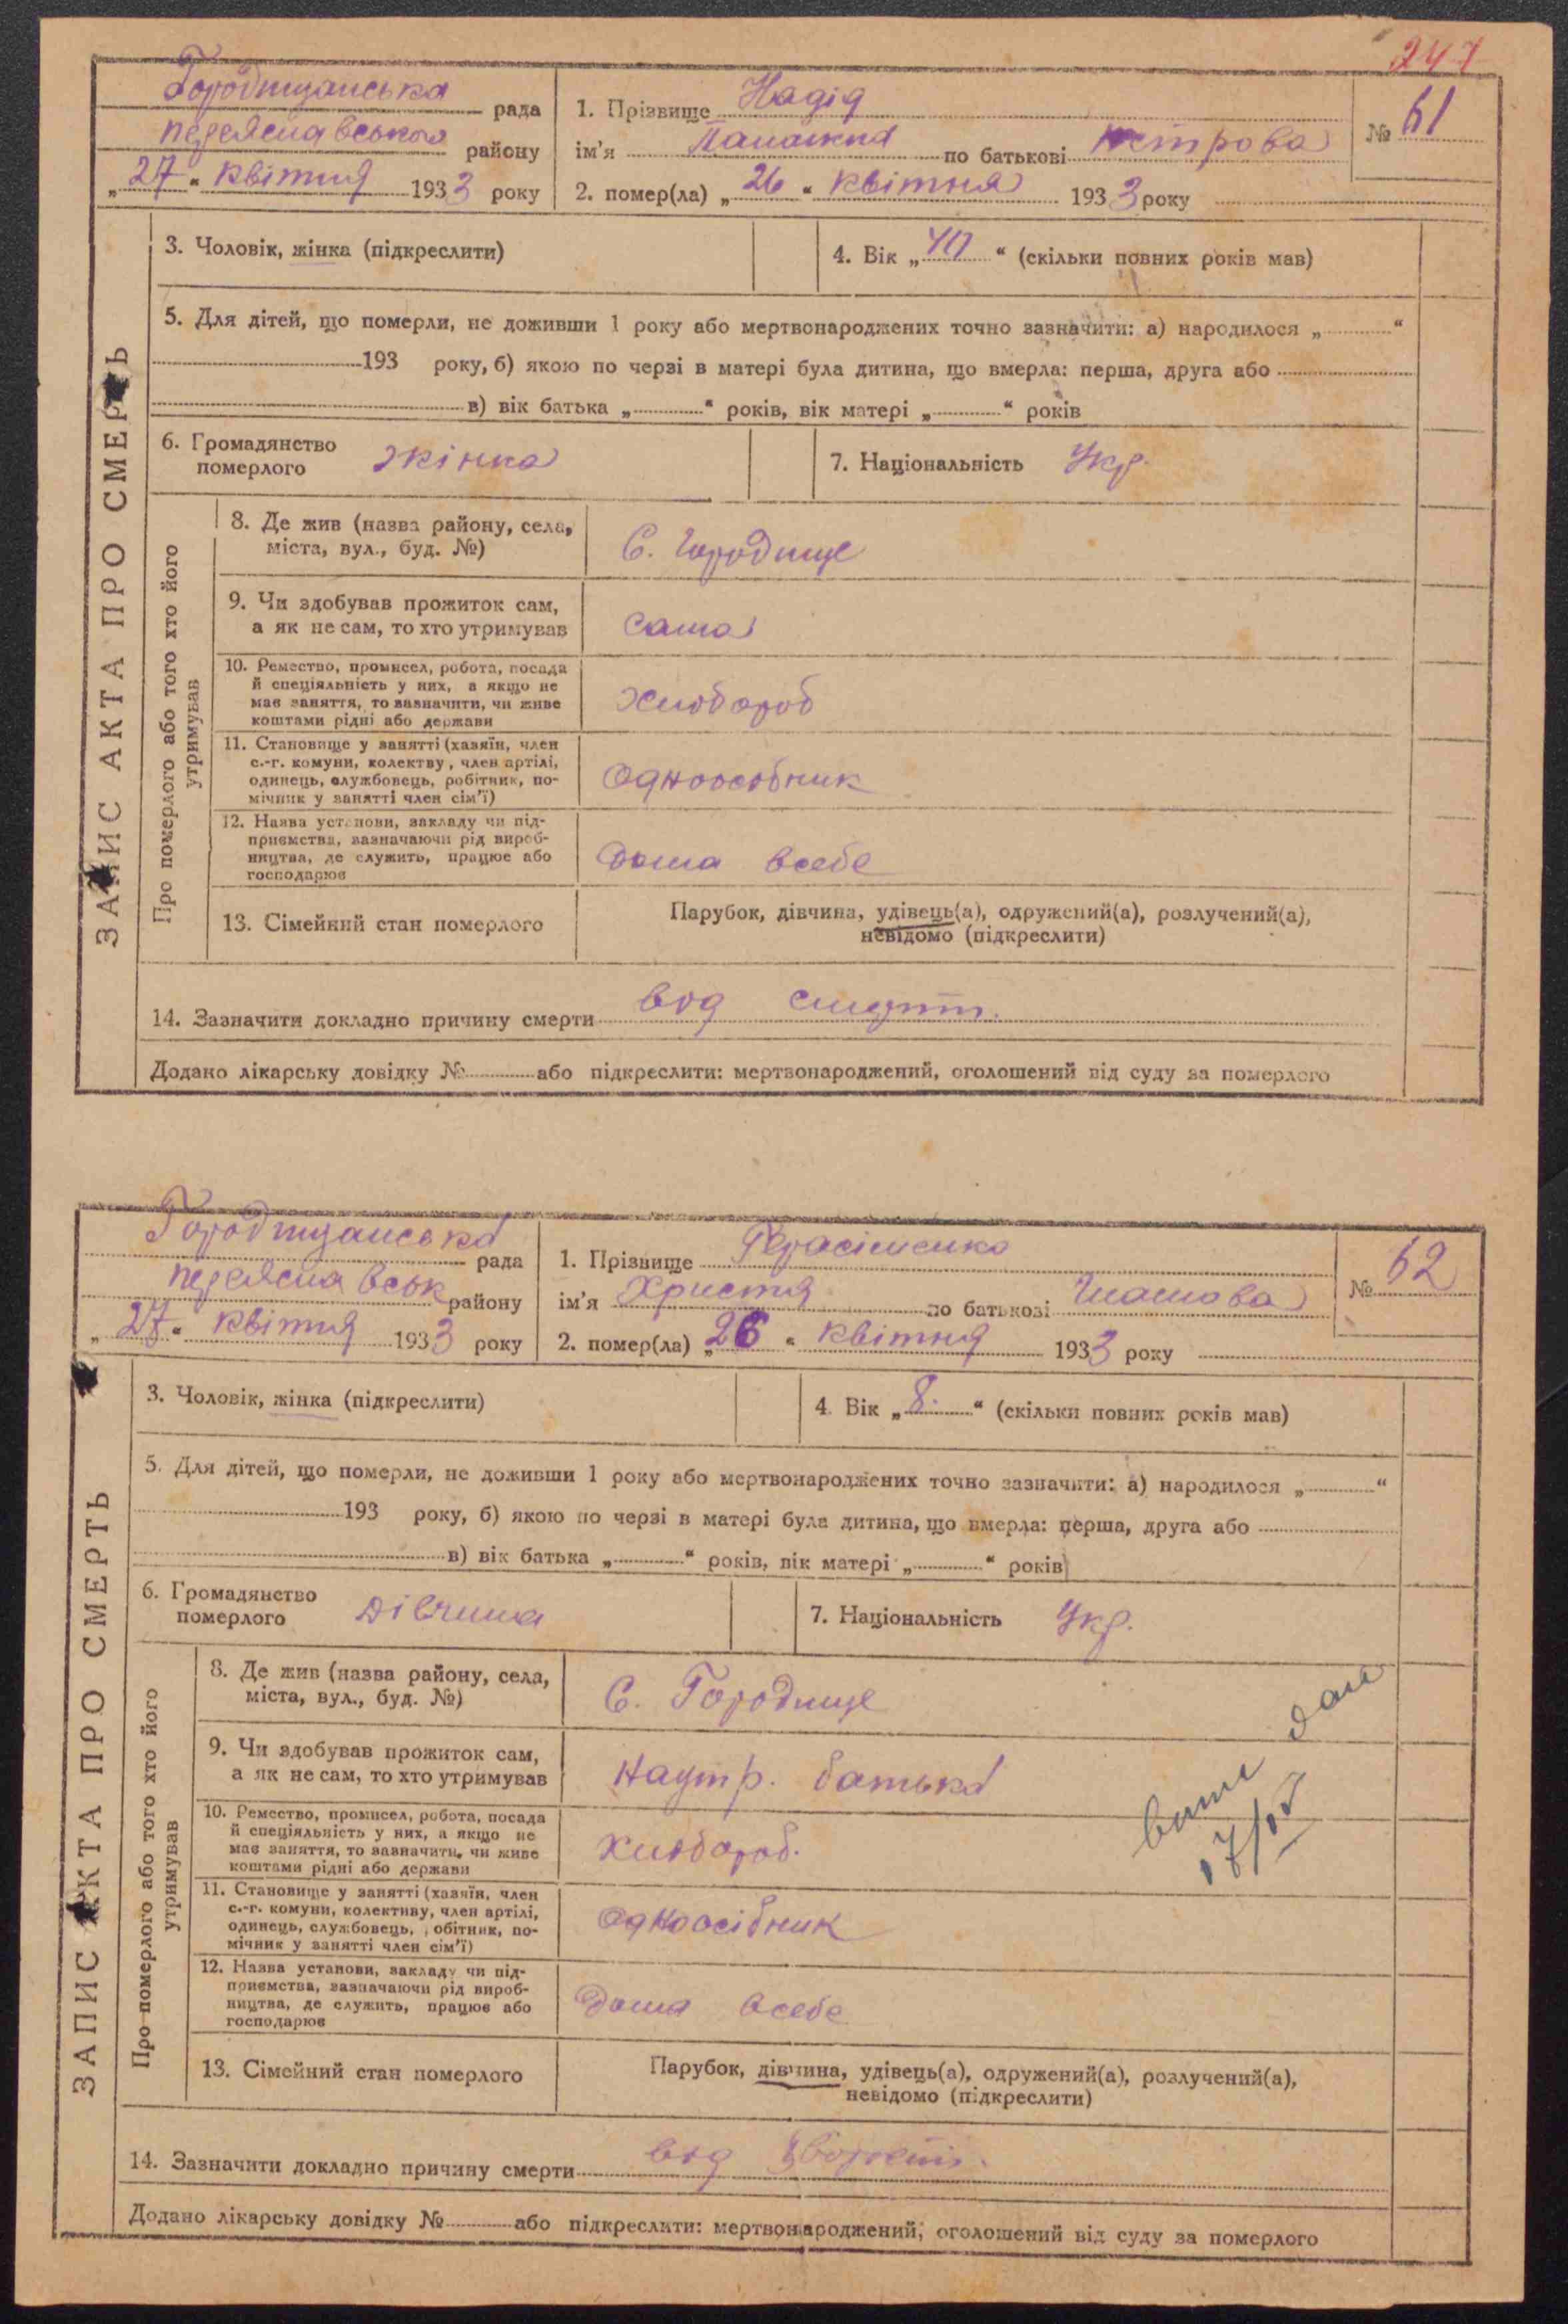 247
Городищанська рада
переяславського району
„27“ квітня 1933 року
1. Прізвище Надія
ім'я по батькові Петрова
2. помер(ла) „26“ квітня 1933 року
№ 61
ЗАПИС АКТА ПРО СМЕРТЬ
3. Чоловік, жінка (підкреслити)
4. Вік „70“ (скільки повних років мав)
5. Для дітей, що померли, не доживши 1 року або мертвонароджених точно зазначити: а) народилося „ “
193 року, б) якою по черзі в матері була дитина, що вмерла: перша, друга або
в) вік батька „ “ років, вік матері „ “ років
6. Громадянство
померлого жінка
7. Національність Укр.
Про померлого або того хто його
утримував
8. Де жив (назва району, села,
міста, вул., буд. №)
С. Городище
9. Чи здобував прожиток сам,
а як не сам, то хто утримував
сама
10. Ремество, промисел, робота, посада
й спеціяльність у них, а якщо не
має заняття, то зазначити, чи живе
коштами рідні або держави
Хлібороб
11. Становище у занятті (хазяїн, член
с.-г. комуни, колективу, член артілі,
одинець, службовець, робітник, по-
мічник у занятті член сім'ї)
Одноосібник
12. Назва установи, закладу чи під-
приємства, зазначаючи рід вироб-
ництва, де служить, працює або
господарює
Дома всебе
13. Сімейний стан померлого
Парубок, дівчина, удівець(а), одружений(а), розлучений(а),
невідомо (підкреслити)
14. Зазначити докладно причину смерти вод
Додано лікарську довідку № або підкреслити: мертвонароджений, оголошений від суду за померлого
Городищанська рада
переяславськ району
„27“ квітня 1933 року
1. Прізвище Герасіменко
ім'я Христя по батькові
2. помер(ла) „26“ квітня 1933 року
№ 62
ЗАПИС АКТА ПРО СМЕРТЬ
3. Чоловік, жінка (підкреслити)
4. Вік „8.“ (скільки повних років мав)
5. Для дітей, що померли, не доживши 1 року або мертвонароджених точно зазначити: а) народилося „ “
193 року, б) якою по черзі в матері була дитина, що вмерла: перша, друга або
в) вік батька „ “ років, вік матері „ “ років
6. Громадянство
померлого дівчина
7. Національність Укр.
Про померлого або того хто його
утримував
8. Де жив (назва району, села,
міста, вул., буд. №)
С. Городище
9. Чи здобував прожиток сам,
а як не сам, то хто утримував
Наутр. батька
10. Ремество, промисел, робота, посада
й спеціяльність у них, а якщо не
має заняття, то зазначити, чи живе
коштами рідні або держави
Хлібороб.
11. Становище у занятті (хазяїн, член
с.-г. комуни, колективу, член артілі,
одинець, службовець, робітник, по-
мічник у занятті член сім'ї)
одноосібник
12. Назва установи, закладу чи під-
приємства, зазначаючи рід вироб-
ництва, де служить, працює або
господарює
Дома всебе
13. Сімейний стан померлого
Парубок, дівчина, удівець(а), одружений(а), розлучений(а),
невідомо (підкреслити)
14. Зазначити докладно причину смерти вод
Додано лікарську довідку № або підкреслити: мертвонароджений, оголошений від суду за померлого